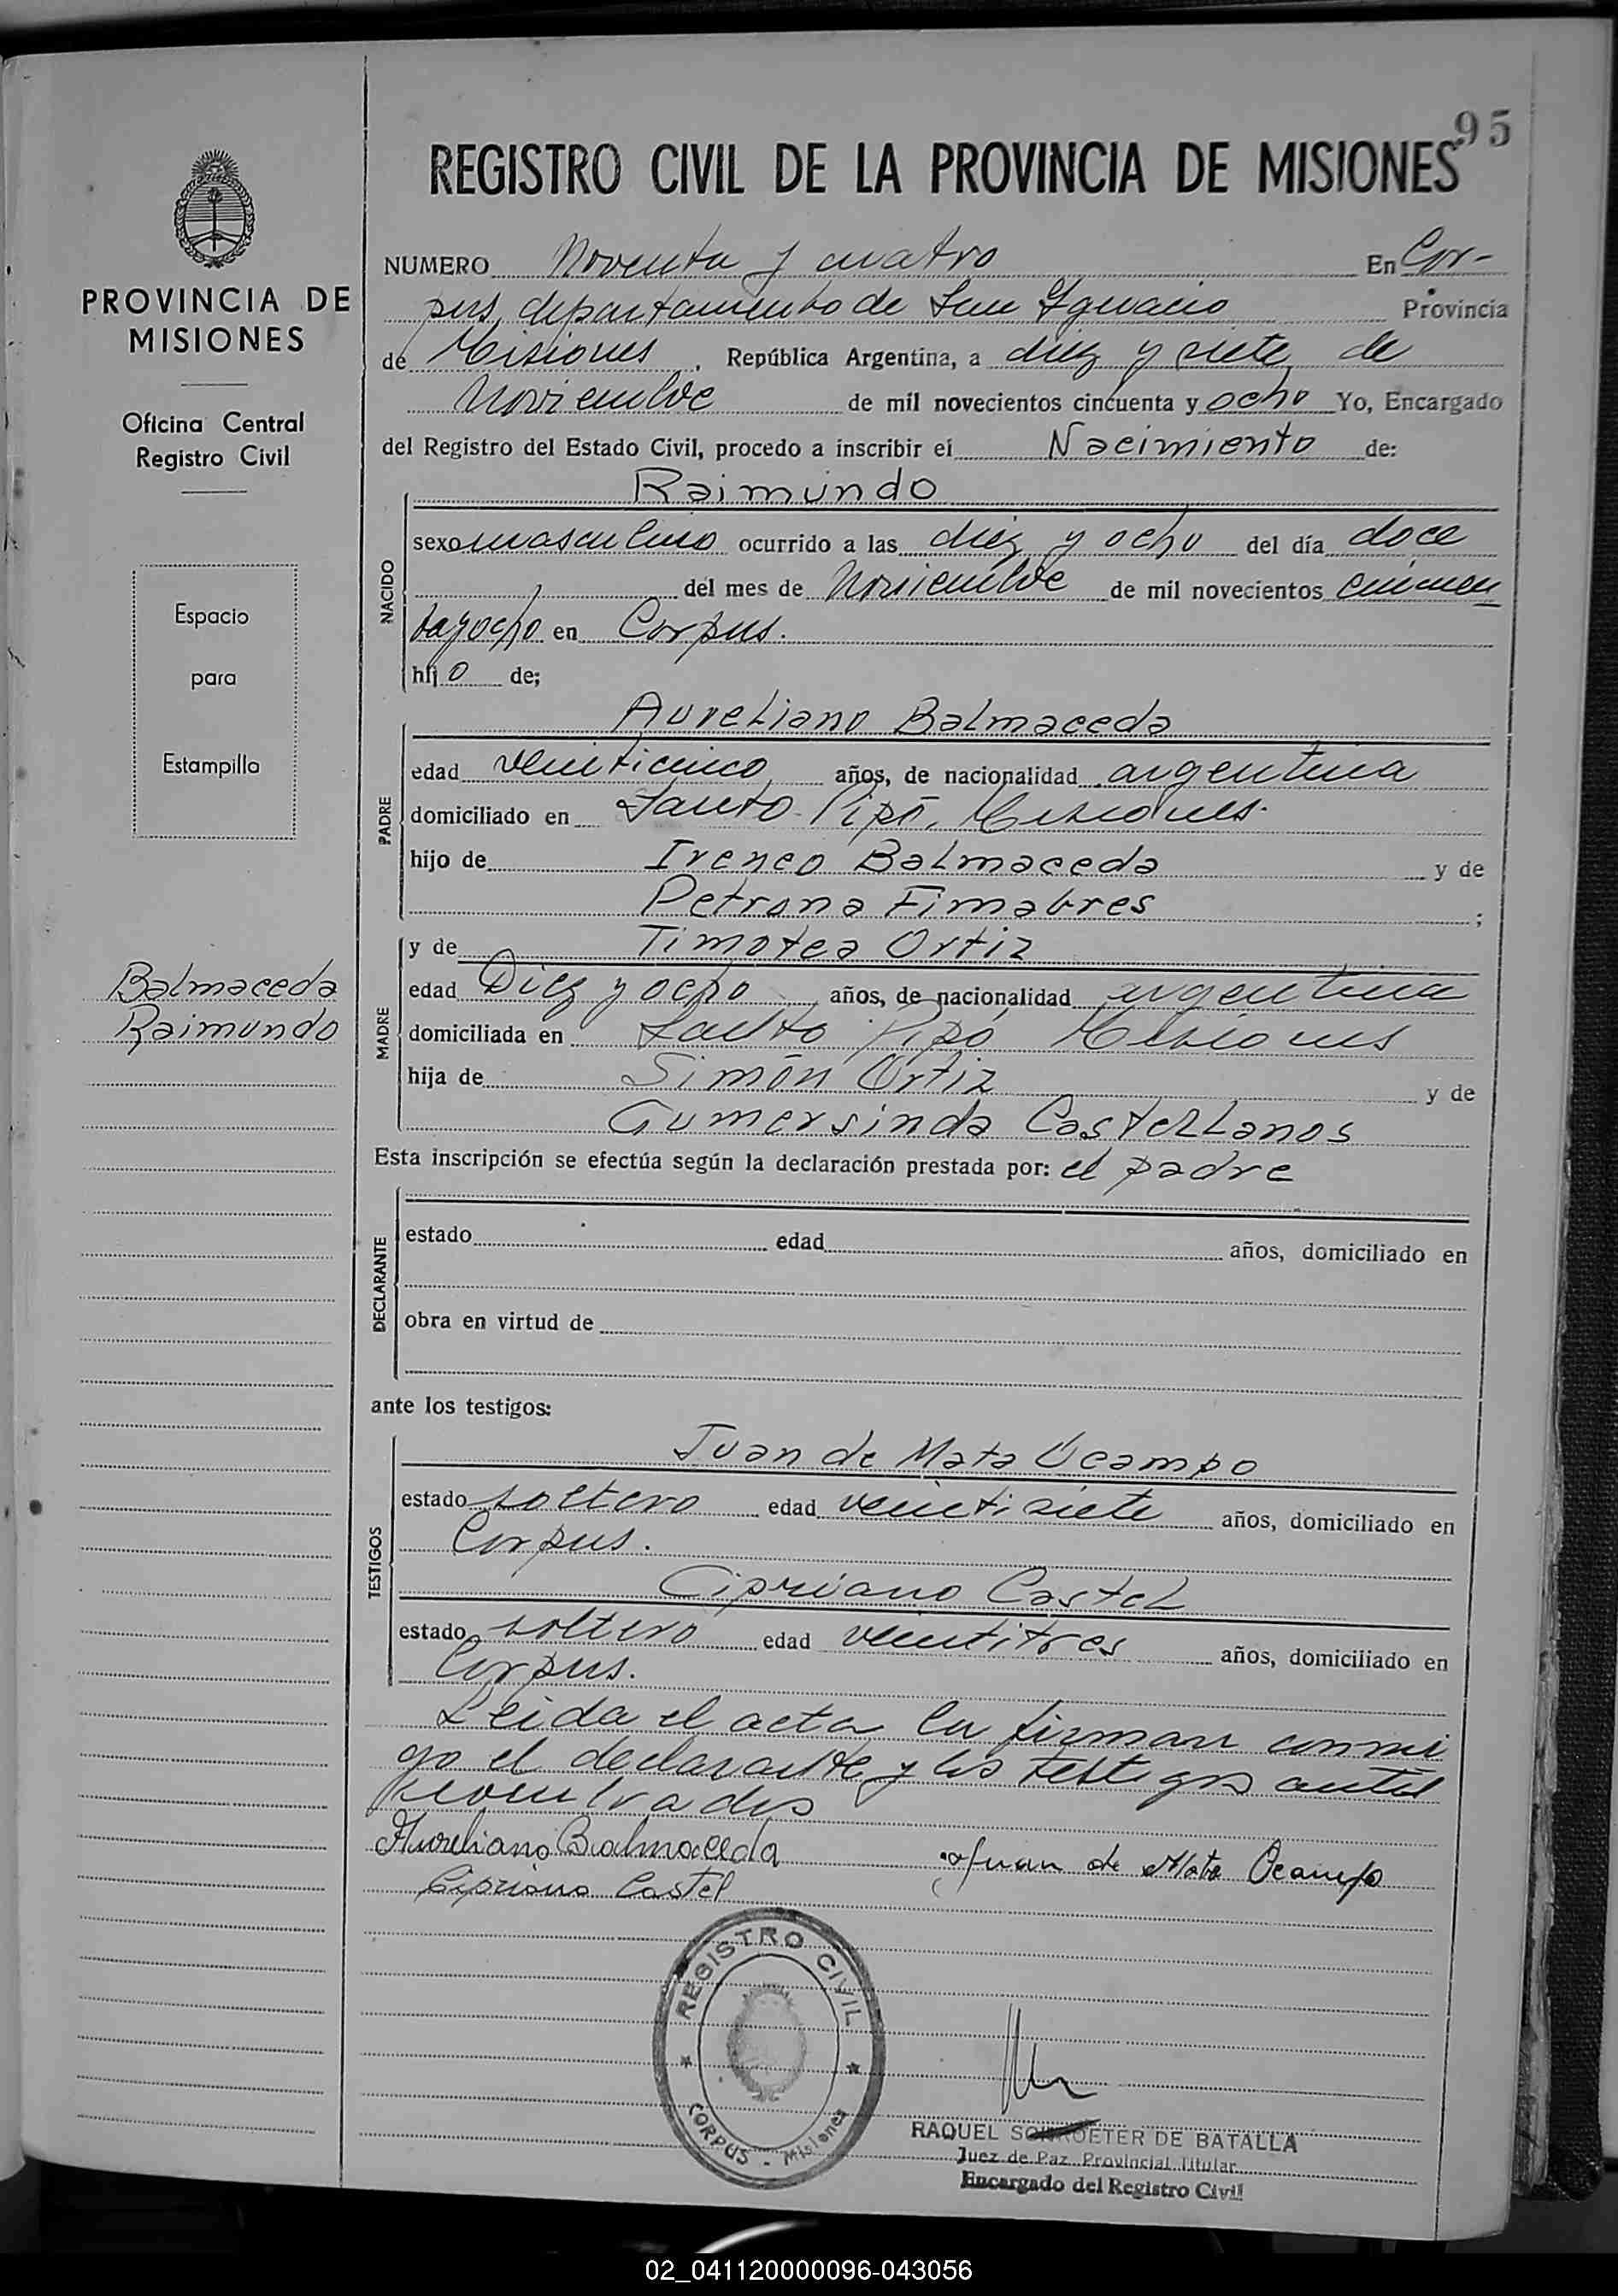 95
REGISTRO CIVIL DE LA PROVINCIA DE MISIONES
PROVINCIA DE
MISIONES
Oficina Central
Registro Civil
Espacio
para
Estampilla
Balmaceda
Raimundo
NUMERO Noventa y cuatro En Cor-
pus, departamento de San Ignacio Provincia
de Misiones, República Argentina, a diez y siete de
Noviembre de mil novecientos cincuenta y ocho Yo, Encargado
del Registro del Estado Civil, procedo a inscribir el Nacimiento de:
NACIDO
Raimundo
sexo masculino ocurrido a las diez y ocho del día doce
del mes de Noviembre de mil novecientos cincuen
tayocho en Corpus.
hijo de;
PADRE
Aureliano Balmaceda
edad veinticinco años, de nacionalidad argentina
domiciliado en Santo Pipó, Misiones.
hijo de Ireneo Balmaceda y de
Petrona Fimabres ;
MADRE
y de Timotea Ortiz
edad Diez y ocho años, de nacionalidad argentina
domiciliada en Santo Pipó Misiones
hija de Simón Ortiz y de
Gumersinda Castellanos
Esta inscripción se efectúa según la declaración prestada por: el padre
DECLARANTE
estado edad años, domiciliado en
obra en virtud de
ante los testigos:
TESTIGOS
Juan de Mata Ocampo
estado soltero edad veintisiete años, domiciliado en
Corpus.
Cipriano Castel
estado soltero edad veintitres años, domiciliado en
Corpus.
Leida el acta la firman conmi
go el declarante y los testigos antes
nombrados
Aureliano Balmaceda Juan de Mata Ocampo
Cipriano Castel
REGISTRO CIVIL
CORPUS - Misiones
RAQUEL SCHROETER DE BATALLA
Juez de Paz Provincial Titular
Encargado del Registro Civil
02_041120000096-043056